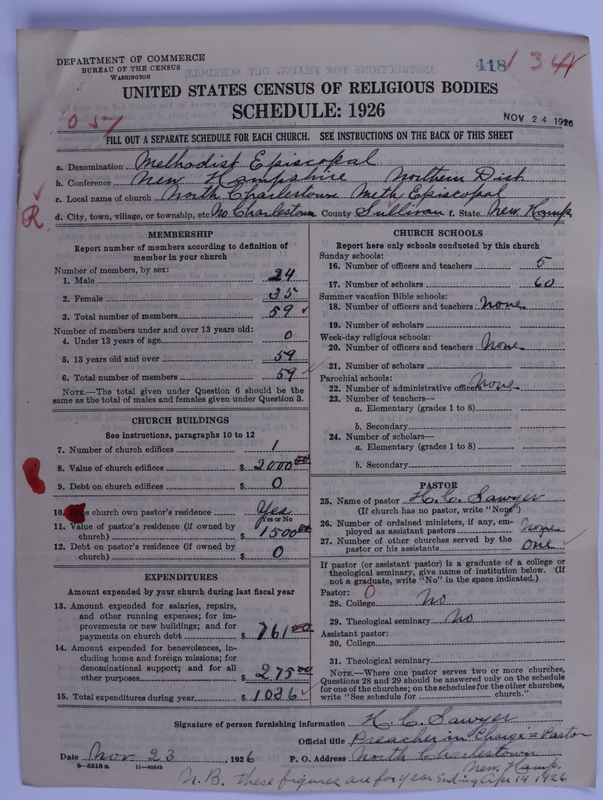 DEPARTMENT OF COMMERCE
BUREAU OF THE CENSUS
WASHINGTON
418
UNITED STATES CENSUS OF RELIGIOUS BODIES
SCHEDULE: 1926
NOV 24 1926
FILL OUT A SEPARATE SCHEDULE FOR EACH CHURCH. SEE INSTRUCTIONS ON THE BACK OF THIS SHEET
a. Denomination Methodist Episcopal
b. Conference New Hampshire Northern Dist
c. Local name of church North Charlestown Meth Episcopal
d. City, town, village, or township, etc. No Charlestown County Sullivan f. State New Hamp.
MEMBERSHIP
Report number of members according to definition of
member in your church
Number of members, by sex:
1. Male 24
2. Female 35
3. Total number of members 59
Number of members under and over 13 years old:
4. Under 13 years of age 0
5. 13 years old and over 59
6. Total number of members 59
NOTE.—The total given under Question 6 should be the
same as the total of males and females given under Question 3.
CHURCH BUILDINGS
See instructions, paragraphs 10 to 12
7. Number of church edifices 1
8. Value of church edifices $ 2000 00
9. Debt on church edifices $ 0
10. church own pastor's residence Yes
Yes or No
11. Value of pastor's residence (if owned by
church) $ 1500 00
12. Debt on pastor's residence (if owned by
church) $ 0
EXPENDITURES
Amount expended by your church during last fiscal year
13. Amount expended for salaries, repairs,
and other running expenses; for im-
provements or new buildings; and for
payments on church debt $ 761 00
14. Amount expended for benevolences, in-
cluding home and foreign missions; for
denominational support; and for all
other purposes $ 275 00
15. Total expenditures during year $ 1036
CHURCH SCHOOLS
Report here only schools conducted by this church
Sunday schools:
16. Number of officers and teachers 5
17. Number of scholars 60
Summer vacation Bible schools:
18. Number of officers and teachers None
19. Number of scholars
Week-day religious schools:
20. Number of officers and teachers None
21. Number of scholars
Parochial schools:
22. Number of administrative officers None
23. Number of teachers—
a. Elementary (grades 1 to 8)
b. Secondary
24. Number of scholars—
a. Elementary (grades 1 to 8)
b. Secondary
PASTOR
25. Name of pastor H. C. Sawyer
(If church has no pastor, write "None")
26. Number of ordained ministers, if any, em-
ployed as assistant pastors None
27. Number of other churches served by the
pastor or his assistants one
If pastor (or assistant pastor) is a graduate of a college or
theological seminary, give name of institution below. (If
not a graduate, write "No" in the space indicated.)
Pastor: 0
28. College No
29. Theological seminary No
Assistant pastor:
30. College
31. Theological seminary
NOTE.—Where one pastor serves two or more churches,
Questions 28 and 29 should be answered only on the schedule
for one of the churches; on the schedules for the other churches,
write "See schedule for church."
Signature of person furnishing information H. C. Sawyer
Official title Preacher in Charge = Pastor
Date Nov 23, 1926 P. O. Address North Charlestown
New. Hamp.
8—5518a 11—9054b
N.B. These figures are for year Ending Apr 14 1926